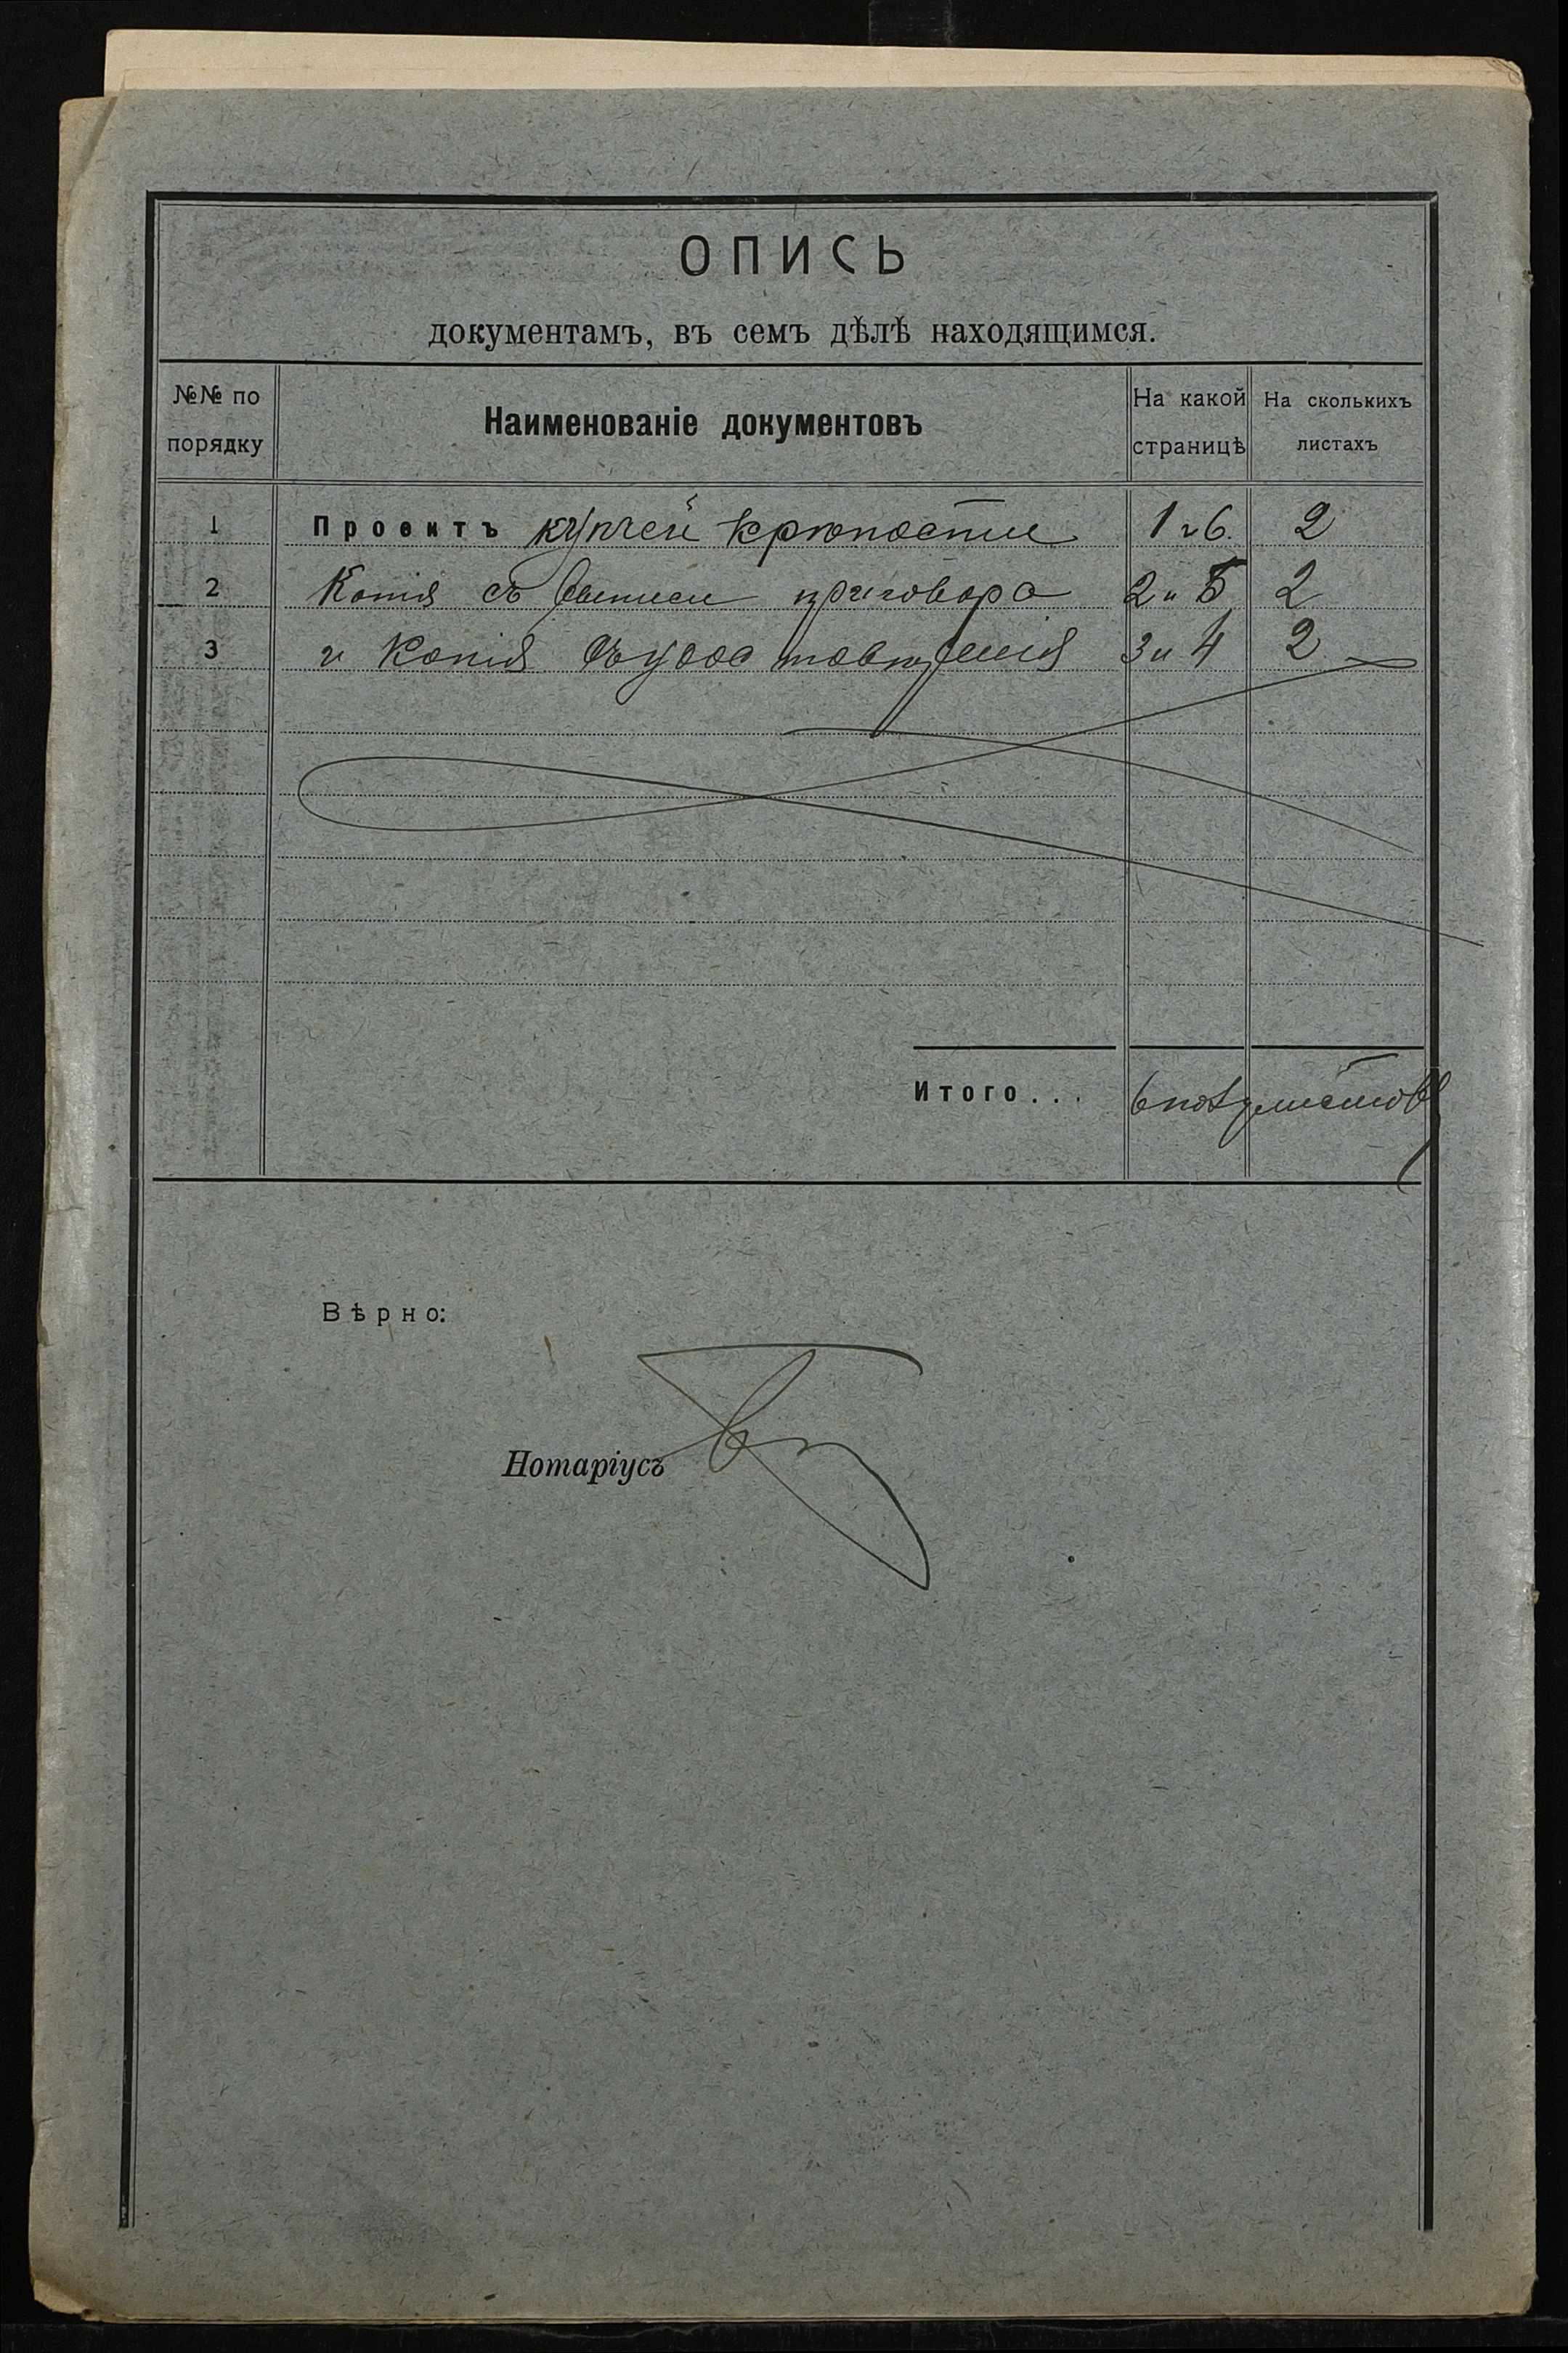 ОПИСЬ
документамъ, въ семъ дѣлѣ находящимся.
№№ по порядку
Наименованіе документовъ
На какой страницѣ
На сколькихъ листахъ
1 Проектъ купчей крѣпости 1 и 6. 2
2 Копія съ выписи приговора 2 и 5 2
3 и Копія съ удостовѣренія 3 и 4 2
Итого... 6 полулистовъ
Вѣрно:
Нотаріусъ